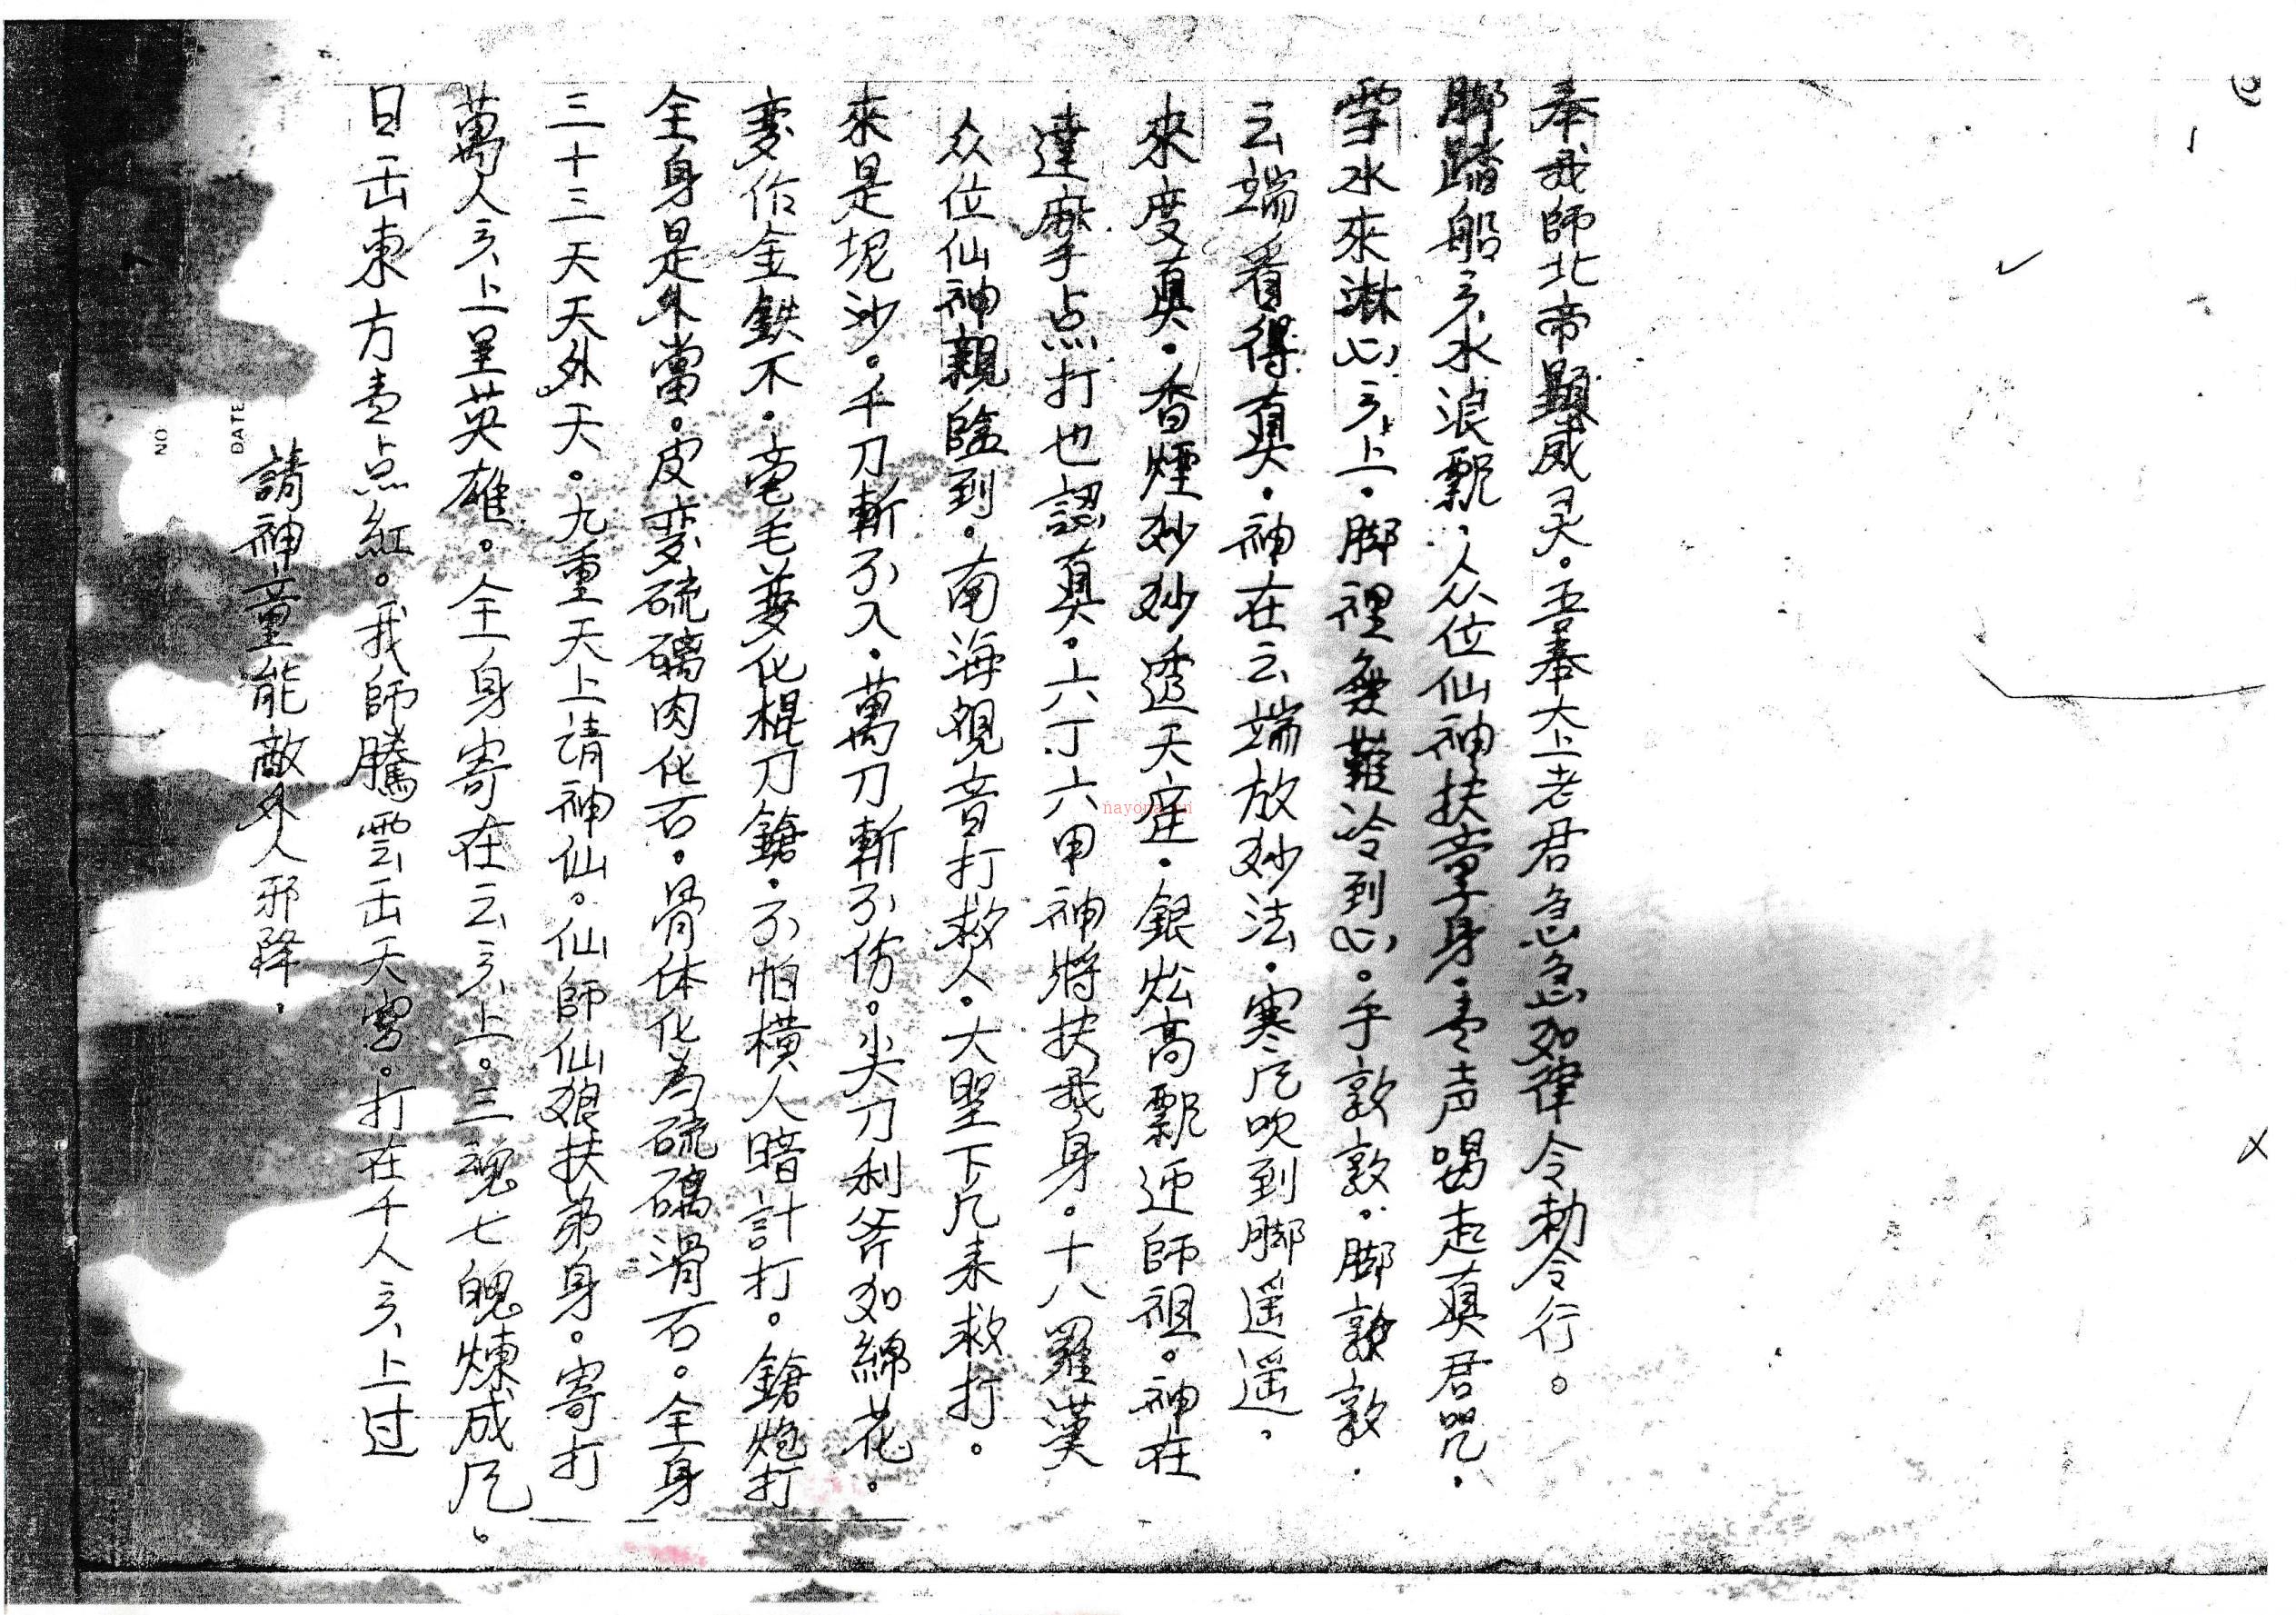 請神童能敵外人邪降.
日出東方壹点紅。我師騰雲出天宮。打在千人头上过
萬人头上呈英雄。全身寄在云头上。三魂七魄煉成凡。
三十三天天外天。九重天上请神仙。仙師仙娘扶弟身。寄打
全身是外當。皮变硫磺肉化石。骨体化為硫磺滑石。全身
变作金鉄不.毫毛变化棍刀鎗.不怕横人暗計打。鎗炮打
來是坭沙。千刀斬不入.萬刀斬不傷。尖刀利斧如綿花。
众位仙神親臨到。南海观音打救人。大聖下凡来救打。
達摩点打也認真。六丁六甲神將扶我身。十八羅漢
來度真.香煙妙妙透天庭.銀炉高飄迎師祖。神在
云端看得真.神在云端放妙法.寒风吹到脚遥遥.
雪水來淋心头上.脚裡发難冷到心。手敦敦.脚敦敦.
脚踏船头水浪飄.众位仙神扶童子身.壹声喝起真君咒.
奉我師北帝顯威灵。吾奉太上老君急急如律令勅令行。
NO
DATE